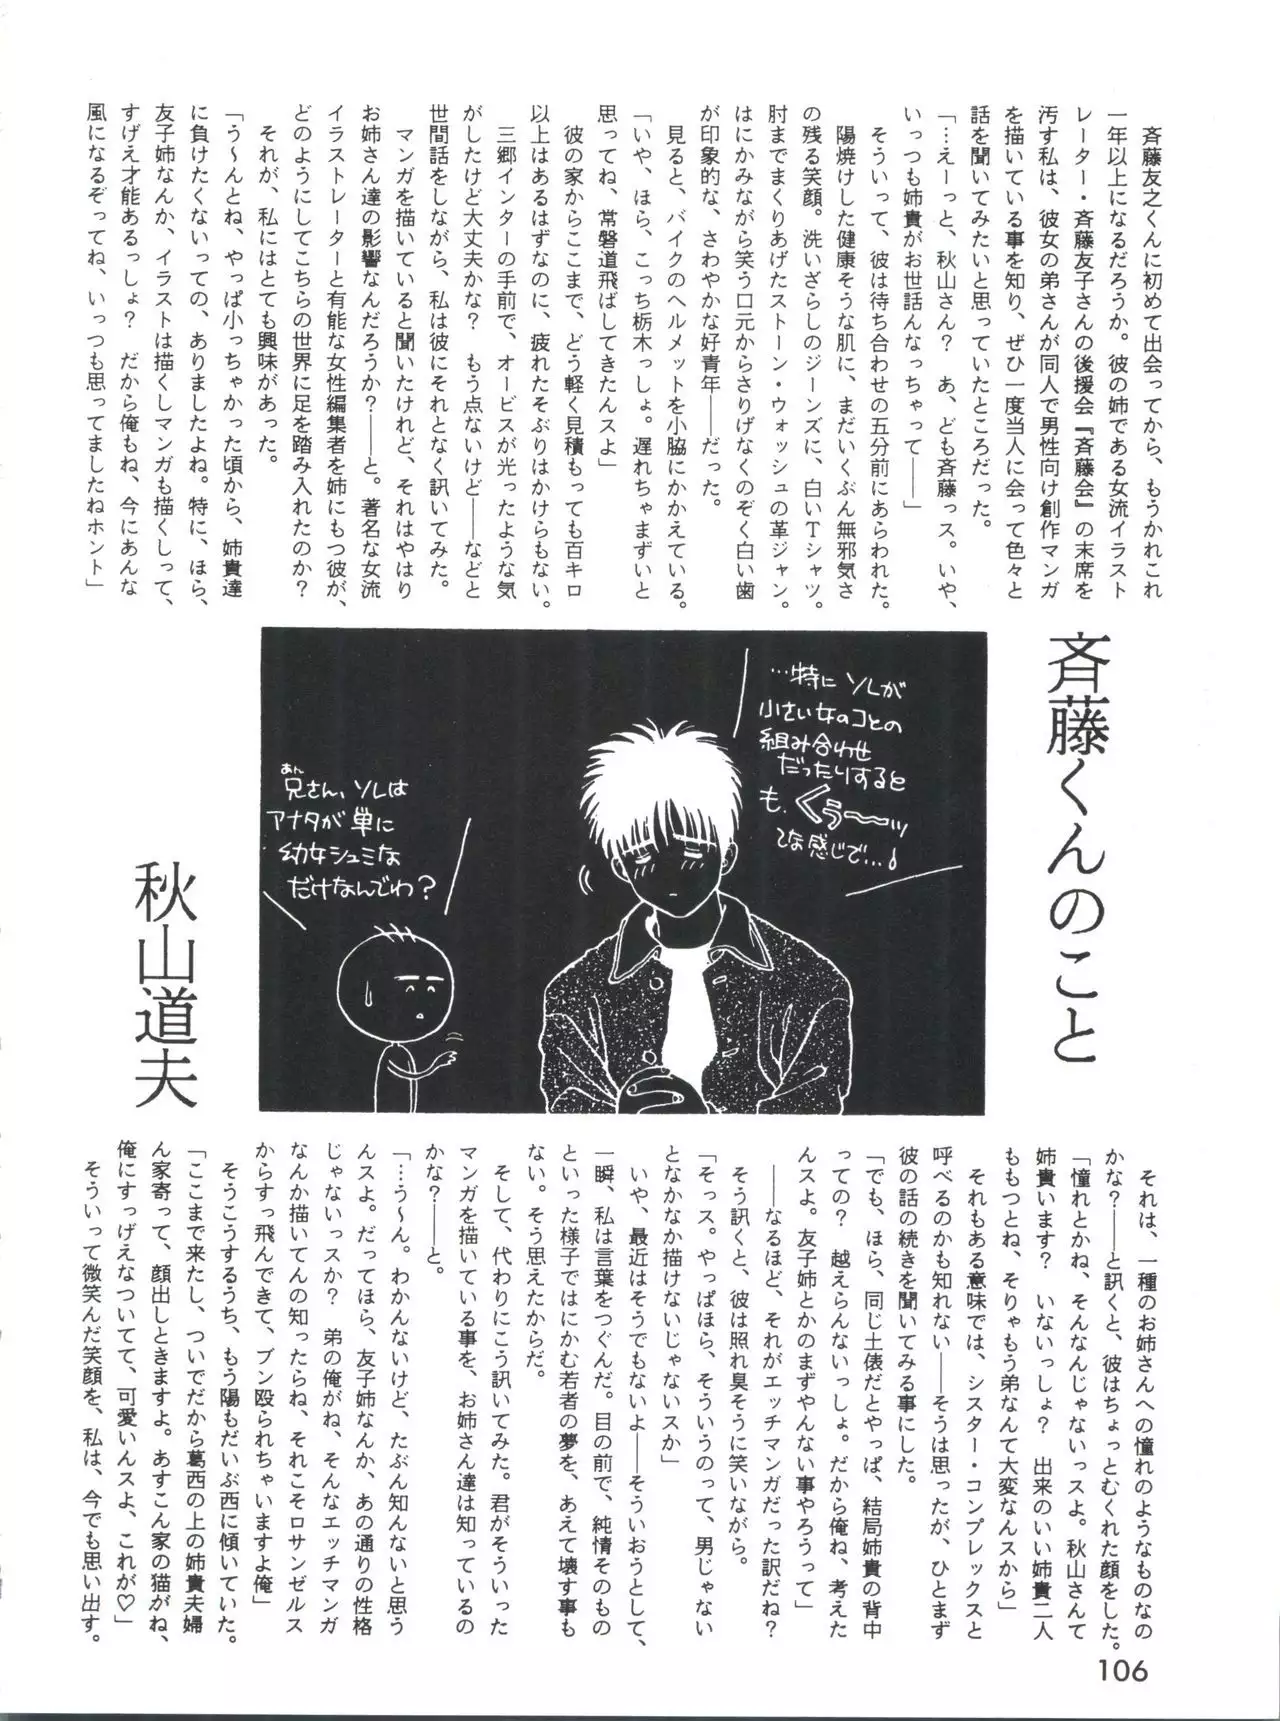 斉藤くんのこと
秋山道夫
　斉藤友之くんに初めて出会ってから、もうかれこれ
一年以上になるだろうか。彼の姉である女流イラスト
レーター・斉藤友子さんの後援会『斉藤会』の末席を
汚す私は、彼女の弟さんが同人で男性向け創作マンガ
を描いている事を知り、ぜひ一度当人に会って色々と
話を聞いてみたいと思っていたところだった。
「…えーっと、秋山さん？　あ、ども斉藤っス。いや、
いっつも姉貴がお世話んなっちゃって――」
　そういって、彼は待ち合わせの五分前にあらわれた。
　陽焼けした健康そうな肌に、まだいくぶん無邪気さ
の残る笑顔。洗いざらしのジーンズに、白いTシャツ。
肘までまくりあげたストーン・ウォッシュの革ジャン。
はにかみながら笑う口元からさりげなくのぞく白い歯
が印象的な、さわやかな好青年――だった。
　見ると、バイクのヘルメットを小脇にかかえている。
「いや、ほら、こっち栃木っしょ。遅れちゃまずいと
思ってね、常磐道飛ばしてきたんスよ」
　彼の家からここまで、どう軽く見積もっても百キロ
以上はあるはずなのに、疲れたそぶりはかけらもない。
　三郷インターの手前で、オービスが光ったような気
がしたけど大丈夫かな？　もう点ないけど――などと
世間話をしながら、私は彼にそれとなく訊いてみた。
　マンガを描いていると聞いたけれど、それはやはり
お姉さん達の影響なんだろうか？――と。著名な女流
イラストレーターと有能な女性編集者を姉にもつ彼が、
どのようにしてこちらの世界に足を踏み入れたのか？
　それが、私にはとても興味があった。
「う～んとね、やっぱ小っちゃかった頃から、姉貴達
に負けたくないっての、ありましたよね。特に、ほら、
友子姉なんか、イラストは描くしマンガも描くしって、
すげえ才能あるっしょ？　だから俺もね、今にあんな
風になるぞってね、いっつも思ってましたねホント」
…特にソレが
小さい女のコとの
組み合わせ
だったりすると
も、くぅ～～ッ
てな感じで…！
あん
兄さん、ソレは
アナタが単に
幼女シュミな
だけなんでわ？
　それは、一種のお姉さんへの憧れのようなものなの
かな？――と訊くと、彼はちょっとむくれた顔をした。
「憧れとかね、そんなんじゃないっスよ。秋山さんて
姉貴います？　いないっしょ？　出来のいい姉貴二人
ももつとね、そりゃもう弟なんて大変なんスから」
　それもある意味では、シスター・コンプレックスと
呼べるのかも知れない――そうは思ったが、ひとまず
彼の話の続きを聞いてみる事にした。
「でも、ほら、同じ土俵だとやっぱ、結局姉貴の背中
っての？　越えらんないっしょ。だから俺ね、考えた
んスよ。友子姉とかのまずやんない事やろうって」
　――なるほど、それがエッチマンガだった訳だね？
　そう訊くと、彼は照れ臭そうに笑いながら。
「そっス。やっぱほら、そういうのって、男じゃない
となかなか描けないじゃないスか」
　いや、最近はそうでもないよ――そういおうとして、
一瞬、私は言葉をつぐんだ。目の前で、純情そのもの
といった様子ではにかむ若者の夢を、あえて壊す事も
ない。そう思えたからだ。
　そして、代わりにこう訊いてみた。君がそういった
マンガを描いている事を、お姉さん達は知っているの
かな？――と。
「…う～ん。わかんないけど、たぶん知んないと思う
んスよ。だってほら、友子姉なんか、あの通りの性格
じゃないっスか？　弟の俺がね、そんなエッチマンガ
なんか描いてんの知ったらね、それこそロサンゼルス
からすっ飛んできて、ブン殴られちゃいますよ俺」
　そうこうするうち、もう陽もだいぶ西に傾いていた。
「ここまで来たし、ついでだから葛西の上の姉貴夫婦
ん家寄って、顔出しときますよ。あすこん家の猫がね、
俺にすっげえなついてて、可愛いんスよ、これが♡」
　そういって微笑んだ笑顔を、私は、今でも思い出す。
106